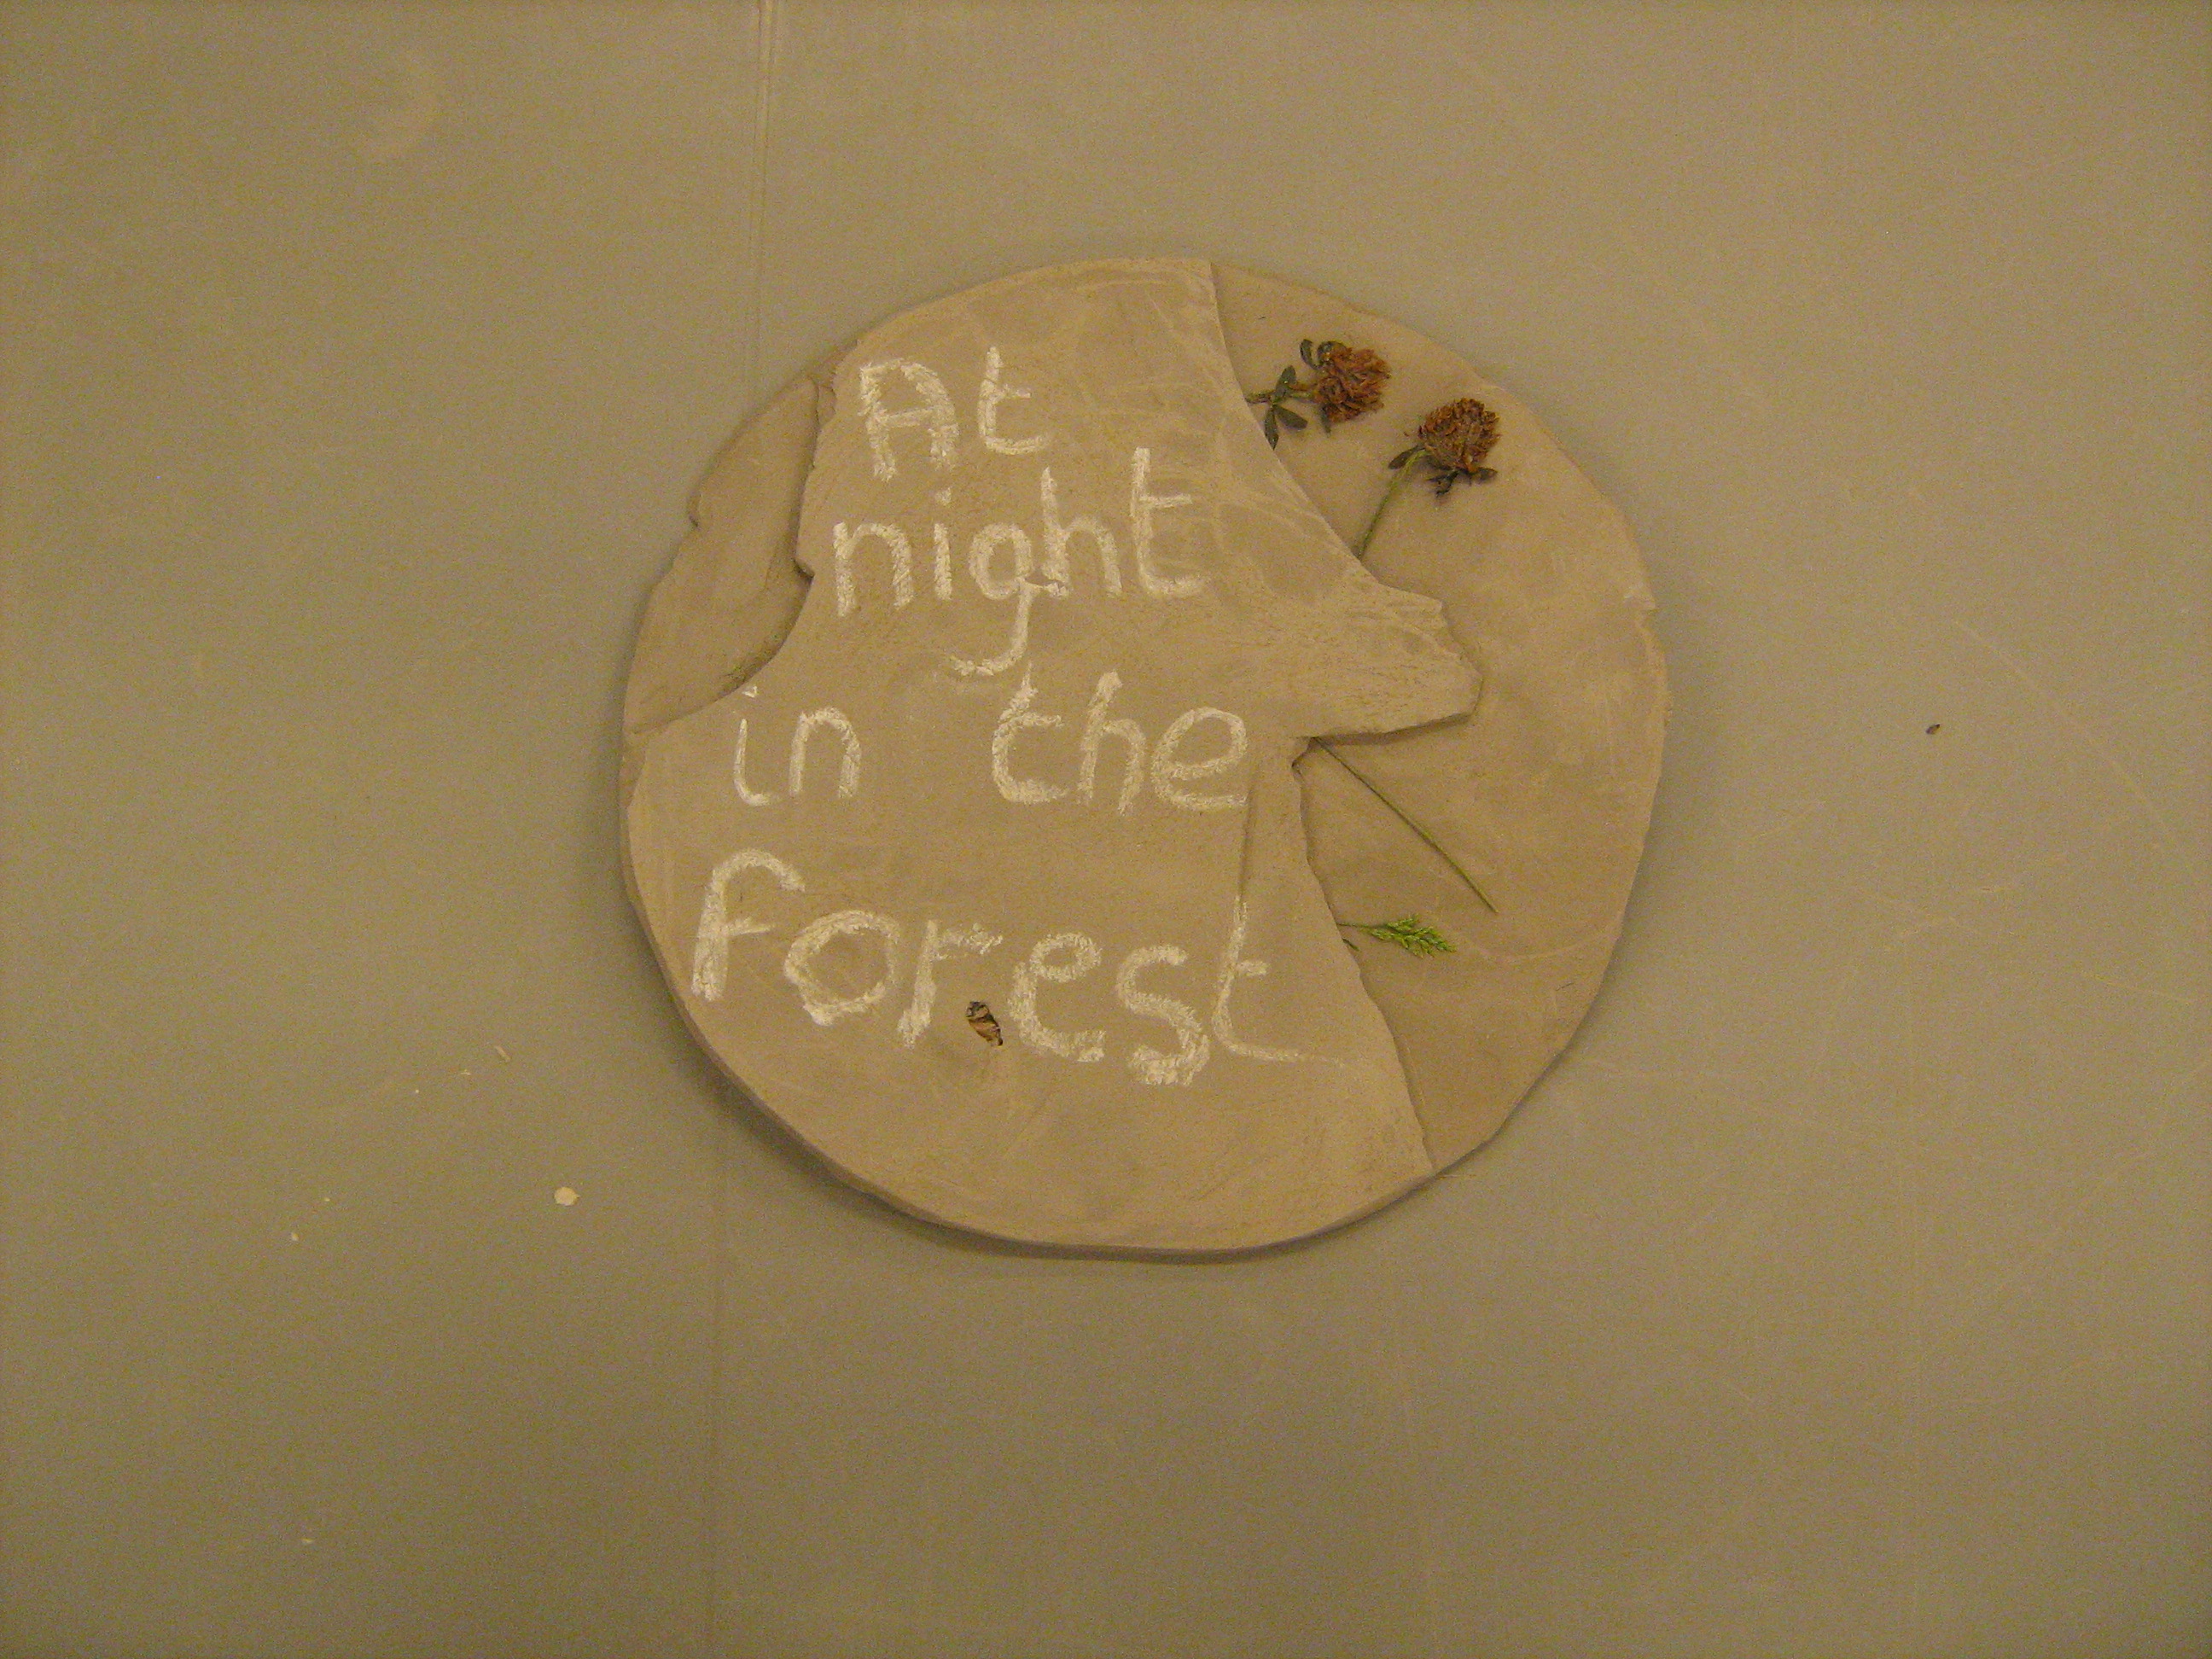 At
night
in the
forest